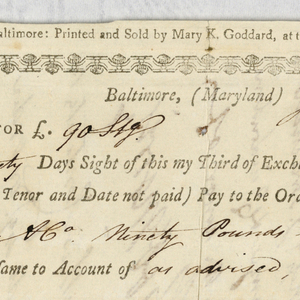 altimore: Printed and Sold by Mary K. Goddard, at t
Baltimore, (Maryland)
FOR £. 90 Stg.
ty Days Sight of this my Third of Exch
Tenor and Date not paid) Pay to the Or
& Co. Ninety Pounds
ame to Account of as advised,